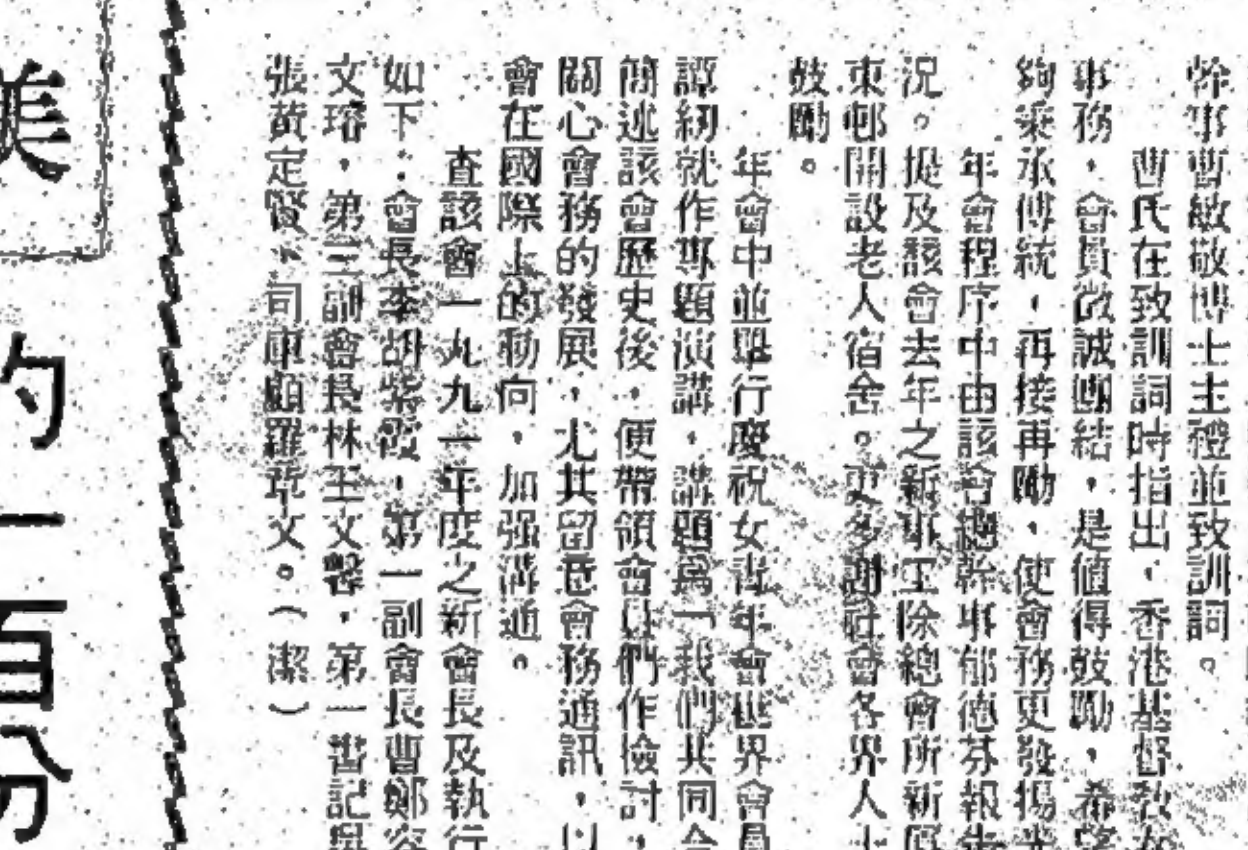 幹事曹敏敬博士主禮並致訓詞。
曹氏在致訓詞時指出，香港基督教女
事務，會員微誠團結，是值得鼓勵，希望
夠秉承傳統，再接再勵，使會務更發揚光
年會程序中由該會總幹事郁德芬報告
況。提及該會去年之新事工除總會所新厦
東邨開設老人宿舍。更多謝社會各界人士
鼓勵。
年會中並舉行慶祝女青年會世界會員
譚紉就作專題演講，講題爲「我們共同合
簡述該會歷史後，便帶領會員們作檢討，
關心會務的發展，尤其留意會務通訊，以
會在國際上的動向，加强溝通。
查該會一九九一年度之新會長及執行
如下：會長李胡紫霞，第一副會長曹鄭姿
文瑢，第三副會長林王文馨，第一書記吳
張黃定賢、司庫顧羅章文。（潔）
美
的一百份